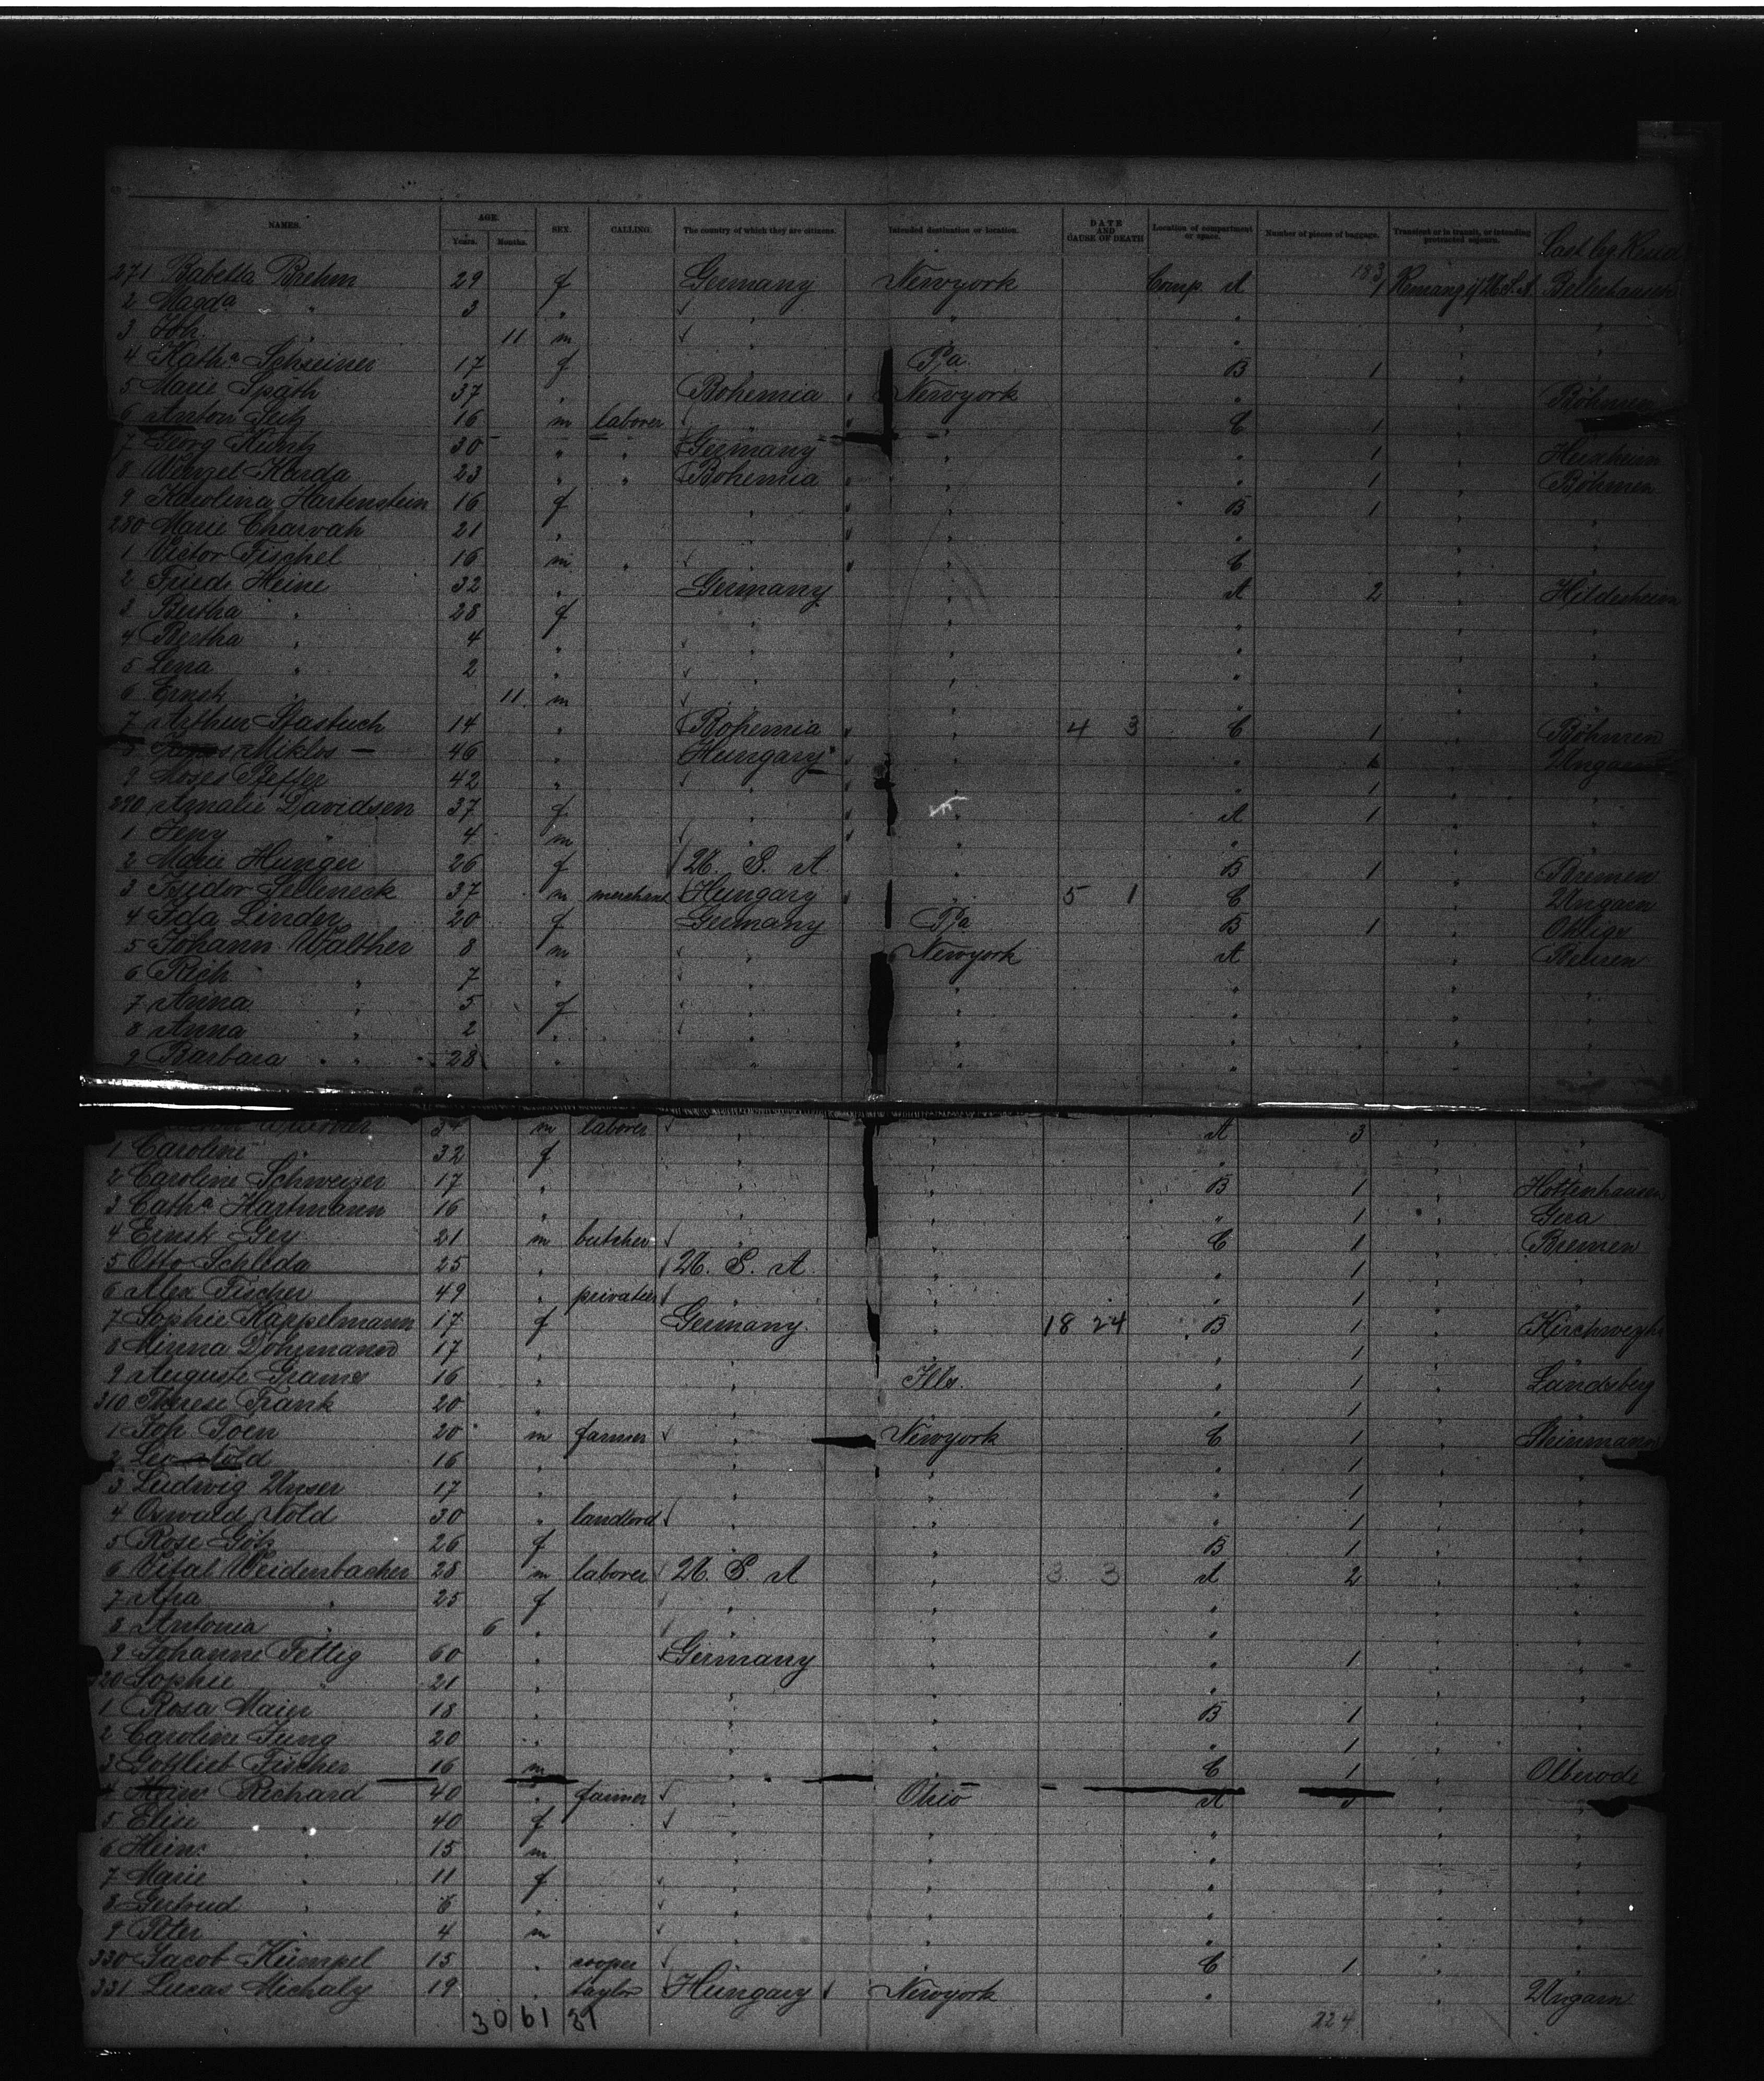 NAMES. AGE. Years. Months. SEX. CALLING. The country of which they are citizens. Intended destination or location. DATE AND CAUSE OF DEATH Location of compartment or space. Number of pieces of baggage. Transient or in transit, or intending protracted sojourn. Last leg. Resid
183
271 Babetta Brehm 29 f Germany Newyork Comp A 1 Bellershausen
2 Magda " 3 " " " " " "
3 Joh. " 11 m " " " " "
4 Katha Schreiner 17 f Pa. B 1 "
5 Marie Späth 37 " Bohemia Newyork " " Böhmen
6 Anton Seitz 16 m laborer " C 1 "
7 Georg Kuntz 30 " " Germany " " 1 " Herxheim
8 Wenzel Harda 23 " " Bohemia " " 1 " Böhmen
9 Karolina Hartenstein 16 f " " B 1 " "
280 Marie Charvah 21 " " " " " "
1 Victor Fischel 16 m " " " C " "
2 Friedr. Heine 32 " Germany " A 2 " Hildesheim
3 Bertha " 28 f " " " " "
4 Bertha " 4 " " " " " "
5 Lena " 2 " " " " " "
6 Ernst " 11 m " " " " "
7 Arthur Stastuch 14 " Bohemia " 4 3 C 1 " Böhmen
Miklos 46 " Hungary " " " Ungarn
9 Moses Pfeffer 42 " " " " 1 " "
290 Amalie Davidsen 37 f " " A 1 " "
1 Jeny " 4 m " " " " "
2 Marie Hunger 26 f U. S. A. " B 1 " Bremen
3 Isidor Selleneck 37 m merchant Hungary " 5 1 C " Ungarn
4 Ida Linder 20 f Germany Pa B 1 " Ohligs
5 Johann Walther 8 m " Newyork A " Belsen
6 Rich " 7 " " " " " "
7 Anna " 5 f " " " " "
8 Anna " 2 " " " " " "
9 Barbara " 28 " " " " " "
m laborer " " A 3 " "
1 Caroline " 32 f " " " " "
2 Caroline Schweizer 17 " " " B 1 " Hottenhausen
3 Catha Hartmann 16 " " " " 1 " Gera
4 Ernst Gey 21 m butcher " " C 1 " Bremen
5 Otto Schlda 25 " U. S. A. " " 1 " "
6 Alex Fischer 49 " privatier " " " 1 " "
7 Sophie Kappelmann 17 f Germany " 18 24 B 1 " Kirchweyhe
8 Minna Dohrmann 17 " " " " 1 " "
9 Auguste Grams 16 " " Ills. " 1 " Landsberg
310 Therese Frank 20 " " " " 1 " "
1 Joh Toen 20 m farmer " Newyork C 1 " Steinmann
2 Leo Nold 16 " " " " 1 " "
3 Ludwig Unser 17 " " " " 1 " "
4 Oswald Nold 30 " landlord " " " 1 " "
5 Rose Götz 26 f " " B 1 " "
6 Vital Weidenbacher 28 m laborer U. S. A " 3 3 A 2 " "
7 Afra " 25 f " " " " "
8 Antonia " 6 " " " " " "
9 Johanne Fettig 60 " Germany " " 1 " "
320 Sophie " 21 " " " " " "
1 Rosa Maier 18 " " " B 1 " "
2 Caroline Jung 20 " " " " 1 " "
3 Gottlieb Fischer 16 m " " C 1 " Olberode
4 Heinr Richard 40 " farmer " Ohio A " "
5 Elise " 40 f " " " " "
6 Heinr. " 15 m " " " " "
7 Marie " 11 f " " " " "
8 Gertrud " 6 " " " " " "
9 Peter " 4 m " " " " "
330 Jacob Kümpel 15 " cooper " " C 1 " "
331 Lucas Michaly 19 " taylor Hungary Newyork " " Ungarn
30 61 31 224